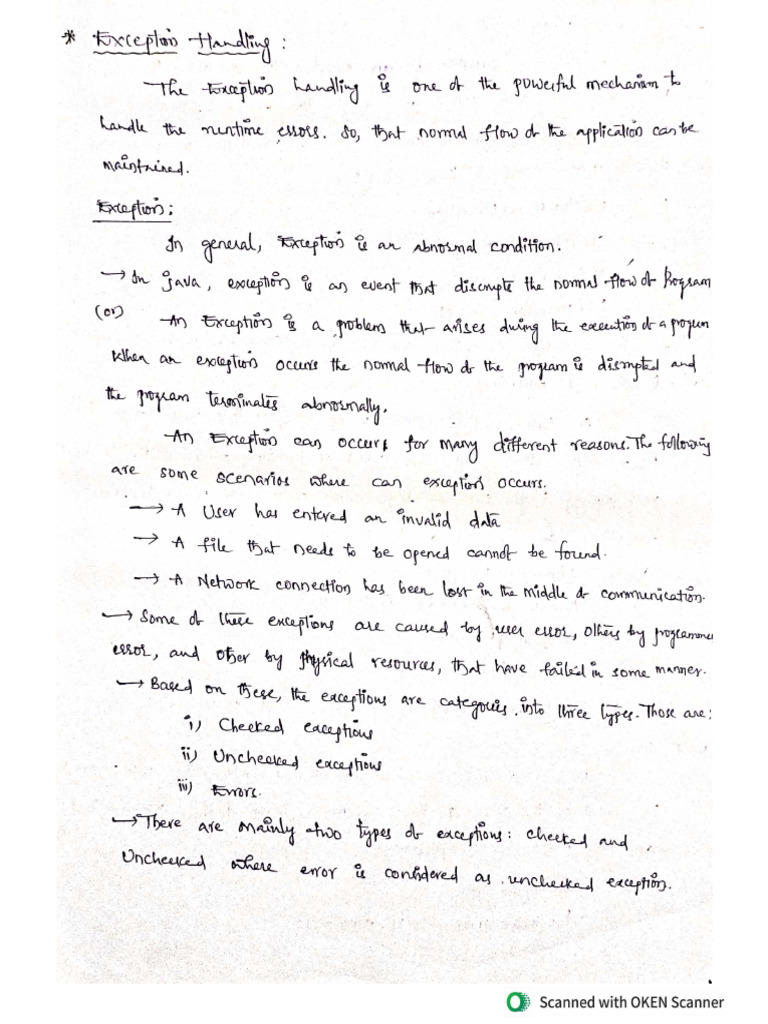 * Exception Handling :
The Exception handling is one of the powerful mechanism to
handle the runtime errors. So, that normal flow of the application can be
maintained.
Exception :
In general, Exception is an abnormal condition.
→ In java, exception is an event that discrupts the normal flow of Program
(or) An Exception is a problem that arises during the execution of a program
When an exception occurs the normal flow of the program is disrupted and
the program terminates abnormally.
An Exception can occurs for many different reasons. The following
are some scenarios where can exception occurs.
→ A User has entered an invalid data
→ A file that needs to be opened cannot be found.
→ A Network connection has been lost in the middle of communication.
→ Some of these exceptions are caused by user error, others by programmer
error, and other by physical resources, that have failed in some manner.
→ Based on these, the exceptions are categories into three types. Those are:
i) Checked exceptions
ii) Unchecked exceptions
iii) Errors.
→ There are mainly two types of exceptions: checked and
Unchecked where error is considered as unchecked exception.
Scanned with OKEN Scanner